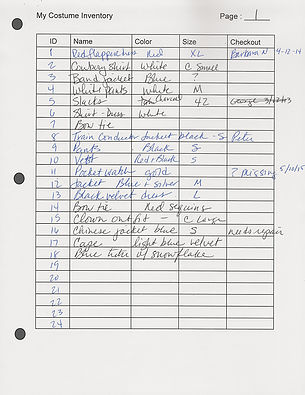 My Costume Inventory Page: 1
ID Name Color Size Checkout
1 Red flapper dress Red XL Barbara N 4-12-14
2 Cowboy Shirt White C Small
3 Band jacket Blue ?
4 White Pants White M
5 Slacks Charcoal 42 George 3/12/13
6 Shirt - Dress White
7 Bow tie
8 Train Conductor Jacket black - S Pete
9 Pants Black S
10 Vest Red + Black S
11 Pocket watch gold ? missing 5/10/15
12 Jacket Blue + silver M
13 Black velvet dress L
14 Bow tie Red sequins
15 Clown outfit - C Large
16 Chinese jacket blue S needs repair
17 Cape light blue velvet
18 Blue tutu w/ snowflake
19
20
21
22
23
24